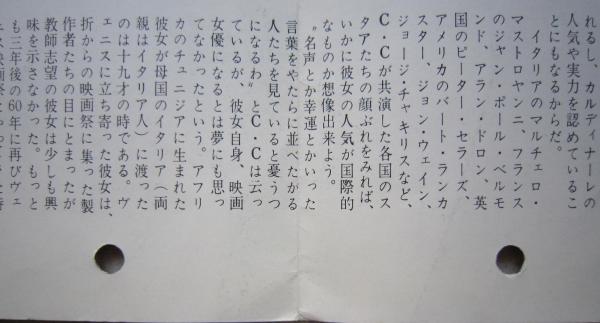 れるし、カルディナーレの
人気や実力を認めているこ
とにもなるからだ。
イタリアのマルチェロ・
マストロヤンニ、フランス
のジャン・ポール・ベルモ
ンド、アラン・ドロン、英
国のピーター・セラーズ、
アメリカのバート・ランカ
スター、ジョン・ウェイン、
ジョージ・チャキリスなど、
C・Cが共演した各国のス
タアたちの顔ぶれをみれば、
いかに彼女の人気が国際的
なものか想像出来よう。
“名声とか幸運とかいった
言葉をやたらに並べたがる
人たちを見ていると憂うつ
になるわ”とC・Cは云っ
ているが、彼女自身、映画
女優になるとは夢にも思っ
てなかったという。アフリ
カのチュニジアに生まれた
彼女が母国のイタリア（両
親はイタリア人）に渡った
のは十九才の時である。ヴ
ェニスに立ち寄った彼女は、
折からの映画祭に集った製
作者たちの目にとまったが
教師志望の彼女は少しも興
味を示さなかった。もっと
も三年後の60年に再びヴェ